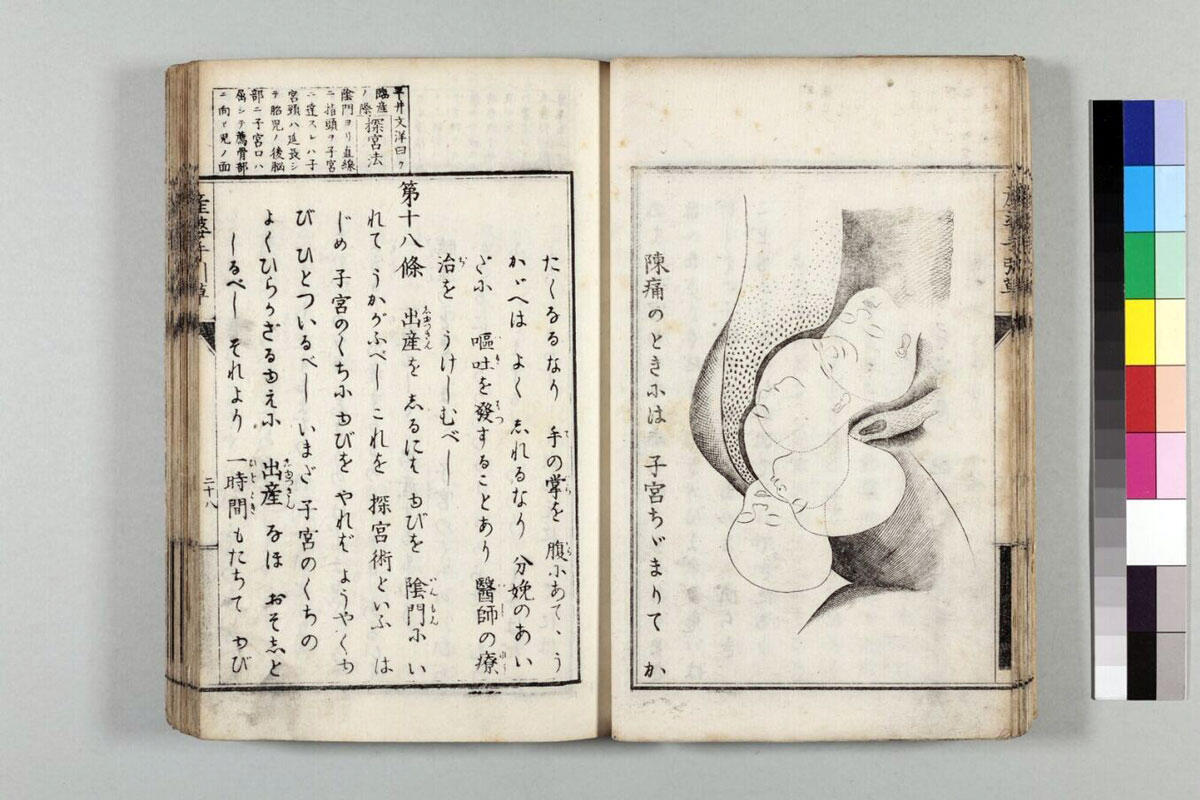 陳痛のときには 子宮ちゞまりて か
たくなるなり 手の掌を 腹にあて、う
かゞへは よく しれるなり 分娩のあい
ざに 嘔吐を發することあり 醫師の療
治を うけしむべし
第十八條 出産を しるには ゆびを 陰門に い
れて うかがふべし これを 探宮術といふ は
じめ 子宮のくちに ゆびを やれば ようやくゆ
び ひとついるべし いまだ 子宮のくちの
よくひらかざるゆえに 出産 なほ おそしと
しるべし それより 一時間もたちて ゆび
平井文洋曰ク
臨産ノ際探宮法
陰門ヨリ直線
ニ指頭ヲ子宮
ニ達スレハ子
宮頸ハ延長シ
テ胎児ノ後脳
部ニ子宮口ハ
屈シテ薦骨部
ニ向ヒ児ノ面
二十八